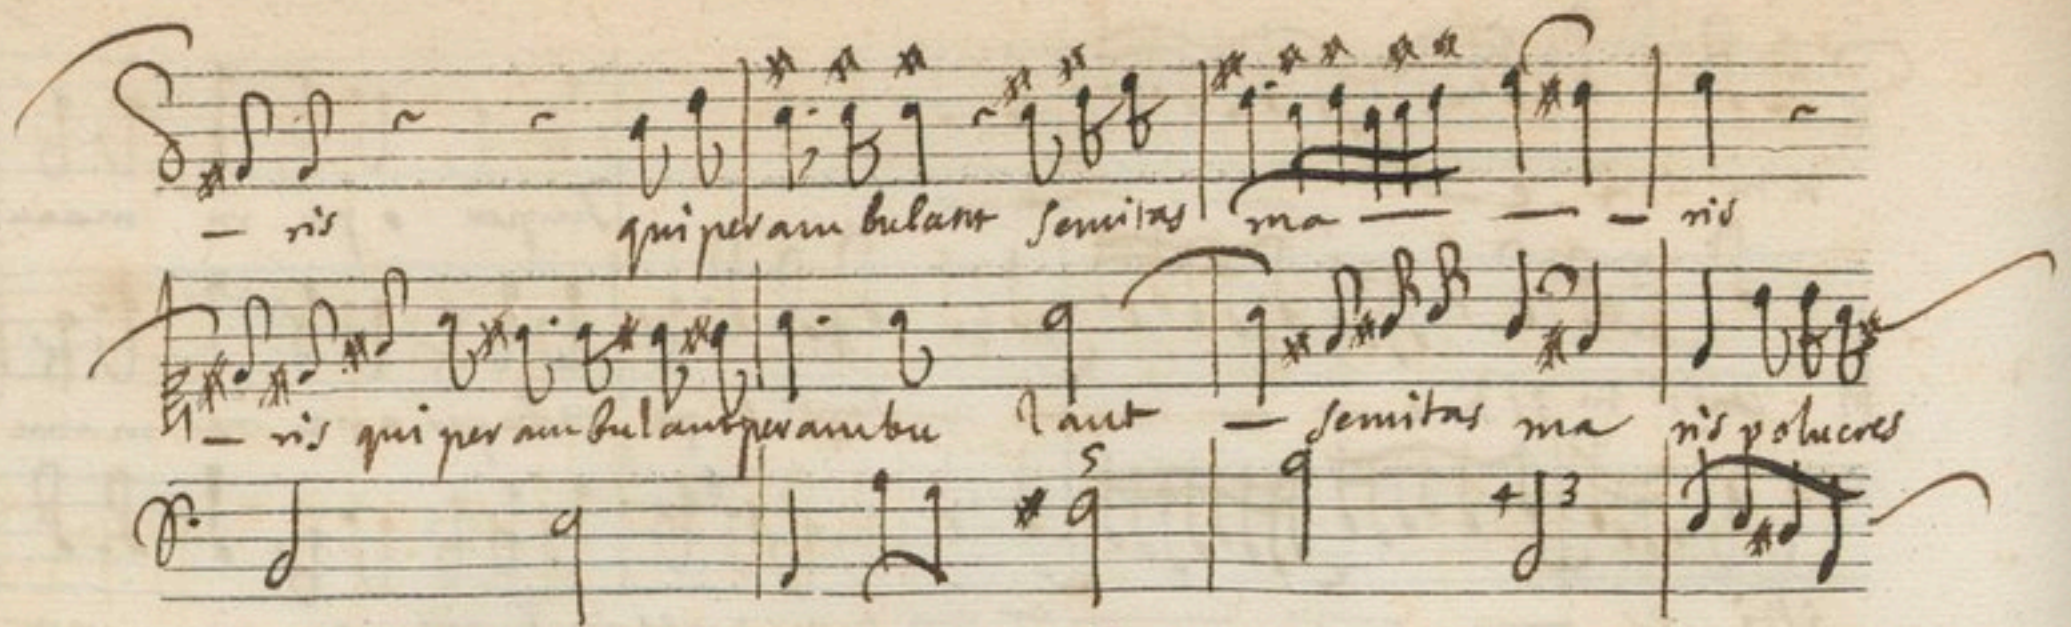 – ris qui perambulant semitas ma – – – ris
– ris qui perambulant perambu lant – semitas ma ris volucres
5
4 3